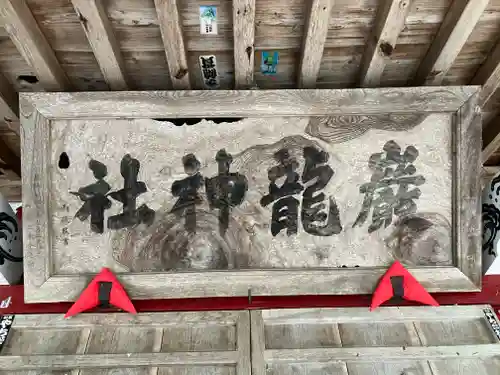 巖龍神社